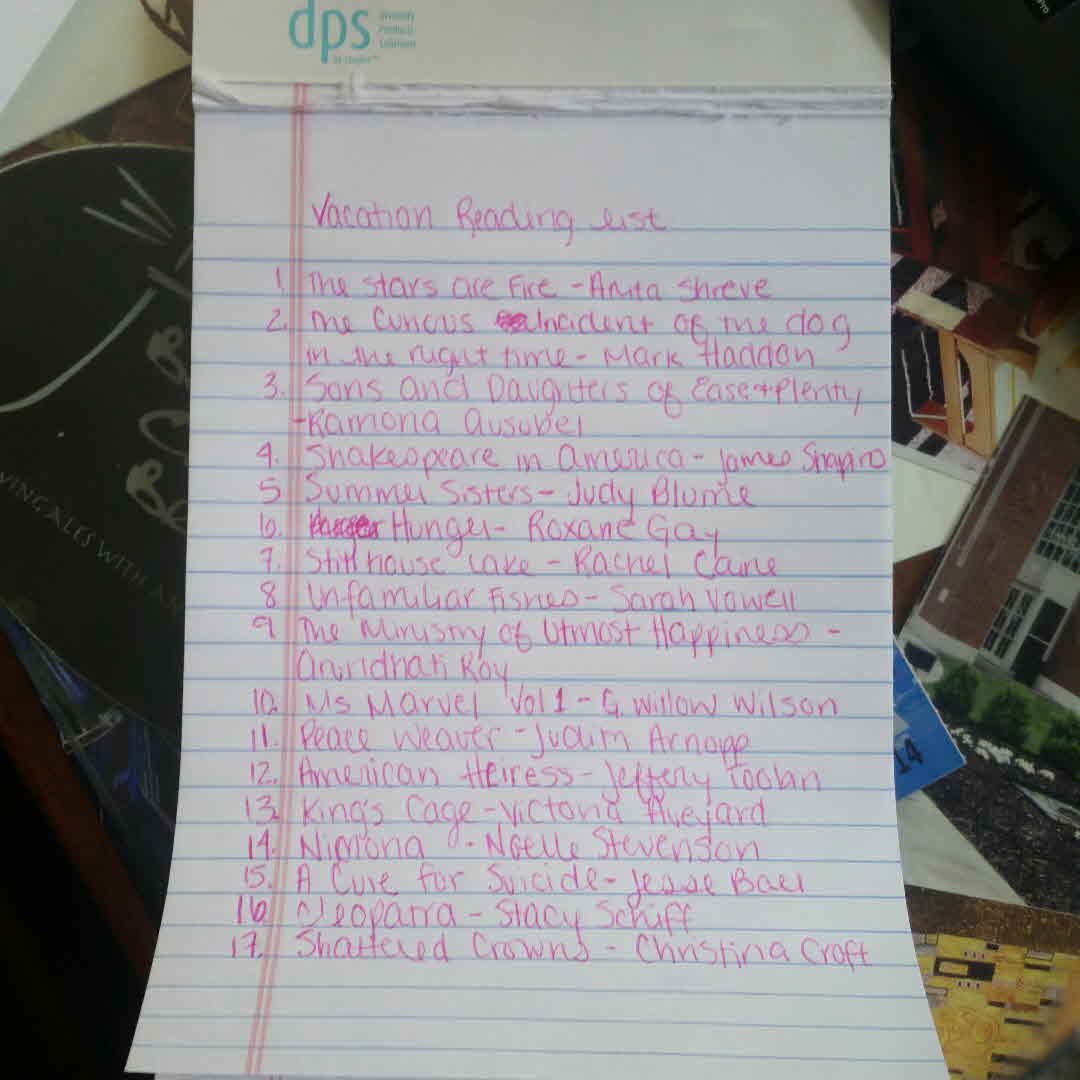 dps
Vacation Reading List
1. The Stars are Fire - Anita Shreve
2. The Curious Incident of the dog
in the night time - Mark Haddon
3. Sons and Daughters of Ease + Plenty
- Ramona Ausubel
4. Shakespeare in America - James Shapiro
5 Summer Sisters - Judy Blume
6. Hunger - Roxane Gay
7. Stillhouse Lake - Rachel Caine
8 Unfamiliar Fishes - Sarah Vowell
9 The Ministry of Utmost Happiness -
Arundhati Roy
10. Ms Marvel Vol 1 - G. Willow Wilson
11. Peace Weaver - Judith Arnopp
12. American Heiress - Jeffery Toobin
13. King's Cage - Victoria Aveyard
14. Nimona - Noelle Stevenson
15. A Cure for Suicide - Jesse Ball
16 Cleopatra - Stacy Schiff
17. Shattered Crowns - Christina Croft
VING ALES WITH
14